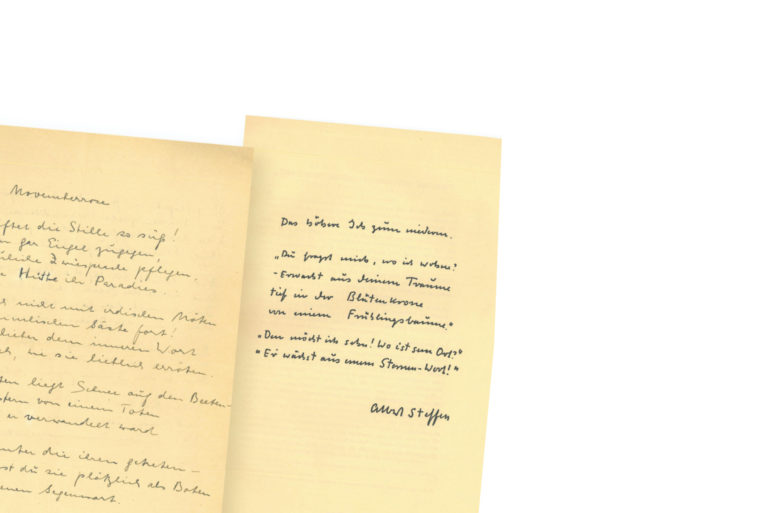 Novemberrose
ftet die Stille so süß!
gar Engel zugegen,
Zwiesprache pflegen.
Hütte ihr Paradies.
nicht mit irdischen Nöten
Gäste fort!
dem inneren Wort
wie sie lieblich erröten.
liegt Schnee auf den Beeten
von einem Toten
er verwandelt ward
unter die ihren getreten –
du sie plötzlich als Boten
Gegenwart.
Das höhere Ich zum niederen.
„Du fragst mich, wo ich wohne?
- Erwacht aus deinem Traume
tief in der Blütenkrone
von einem Frühlingsbaume."
„Den möcht ich sehn! Wo ist sein Ort?"
„Er wächst aus einem Sternen-Wort!"
Albert Steffen